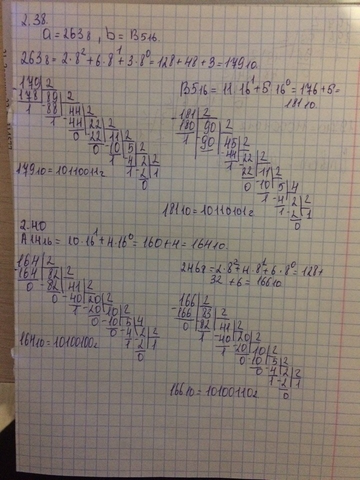 2.38.
a = 263₈, b = B5₁₆.
263₈ = 2·8² + 6·8¹ + 3·8⁰ = 128 + 48 + 3 = 179₁₀.
179 | 2
178 | 89 | 2
1 88 | 44 | 2
1 -44 | 22 | 2
0 -22 | 11 | 2
0 -10 | 5 | 2
1 -4 | 2 | 2
1 -2 | 1
0
179₁₀ = 10110011₂
B5₁₆ = 11·16¹ + 5·16⁰ = 176 + 5 =
181₁₀.
181 | 2
180 | 90 | 2
1 90 | 45 | 2
44 | 22 | 2
1 22 | 11 | 2
0 -10 | 5 | 4
1 -4 | 2 | 2
1 -2 | 1
0
181₁₀ = 10110101₂
2.40
A4₁₆ = 10·16¹ + 4·16⁰ = 160 + 4 = 164₁₀.
164 | 2
-164 | 82 | 2
0 -82 | 41 | 2
0 -40 | 20 | 2
1 -20 | 10 | 2
0 -10 | 5 | 4
0 -4 | 2 | 2
1 -2 | 1
0
164₁₀ = 10100100₂
246₈ = 2·8² + 4·8¹ + 6·8⁰ = 128 +
32 + 6 = 166₁₀
166 | 2
-166 | 83 | 2
0 82 | 41 | 2
1 -40 | 20 | 2
1 -20 | 10 | 2
0 -10 | 5 | 2
0 -4 | 2 | 2
1 -2 | 1
0
166₁₀ = 10100110₂